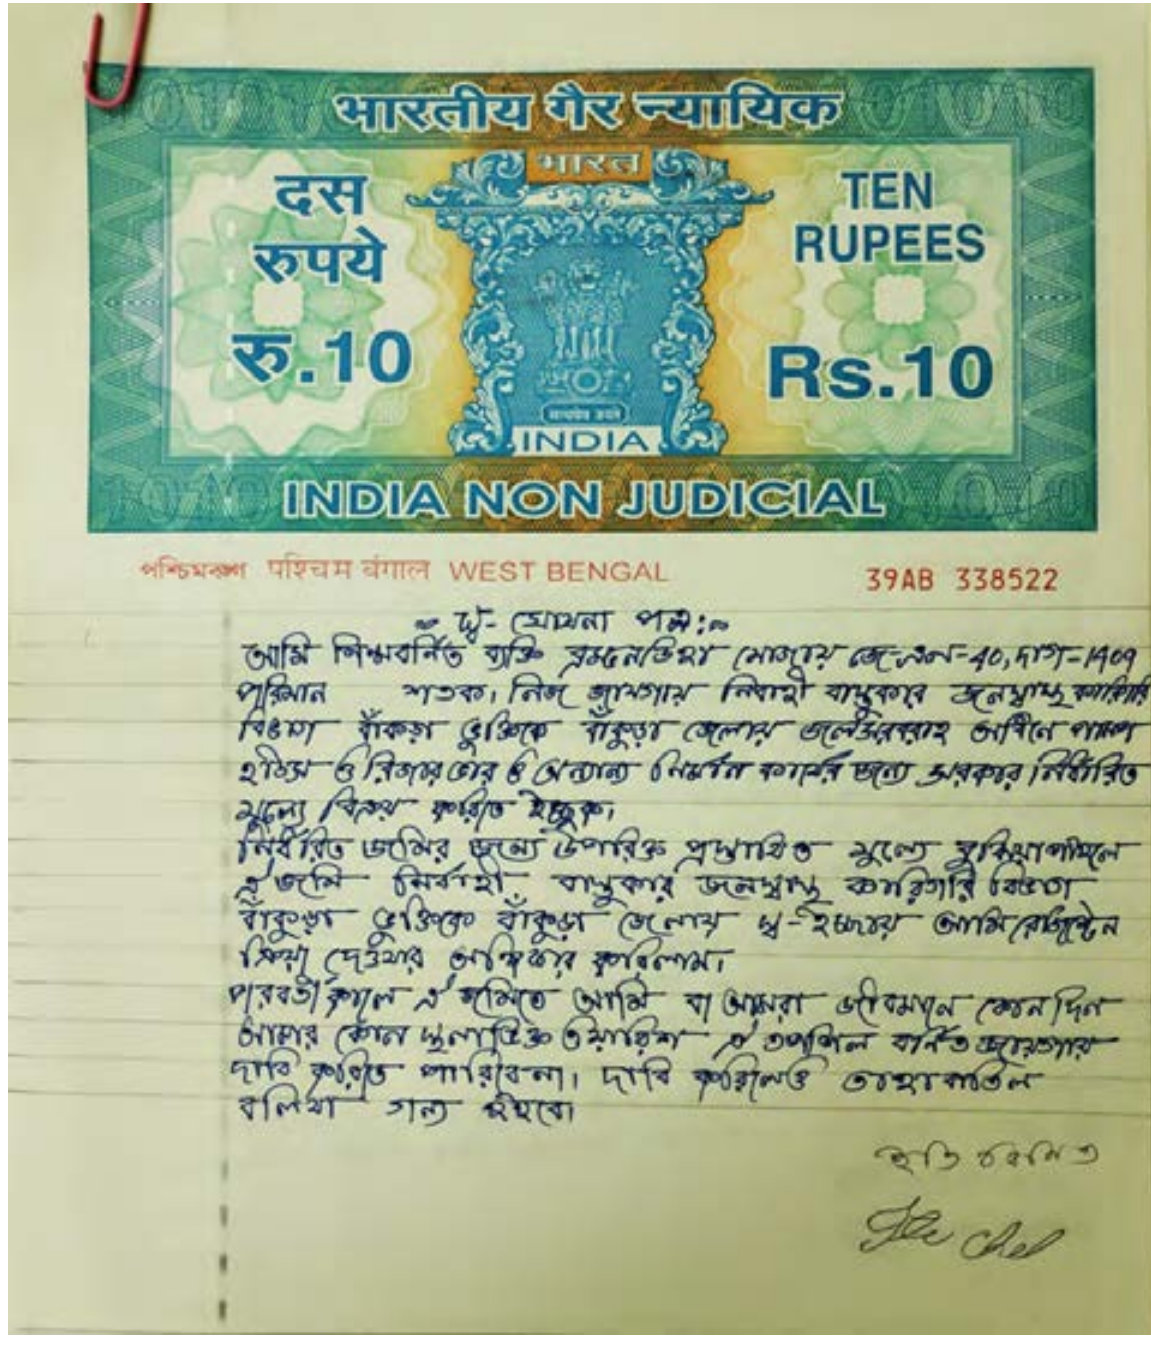 भारतीय गैर न्यायिक
भारत
दस
रुपये
रु.10
TEN
RUPEES
Rs.10
सत्यमेव जयते
INDIA
INDIA NON JUDICIAL
পশ্চিমবঙ্গ पश्चिम बंगाल WEST BENGAL
39AB 338522
স্ব-ঘোষনা পত্র:
আমি নিম্নবর্নিত ব্যক্তি মৌজায় জে-এল-40, দাগ-1409
পরিমান শতক। নিজ জায়গায় নির্বাহী বাস্তুকার জনস্বাস্থ্য কারিগরি
বিভাগ বাঁকুড়া ভুক্তিকে বাঁকুড়া জেলায় জলসরবরাহ অধিনে পাম্প
হাউস ও রিজার্ভার ও অন্যান্য নির্মান কার্যের জন্যে সরকার নির্ধারিত
মূল্যে বিক্রয় করিতে ইচ্ছুক।
নির্ধরিত জমির জন্যে উপরিক্ত প্রস্তাবিত মূল্যে বুঝিয়া পাইলে
ঐ জমি নির্বাহী বাস্তুকার জনস্বাস্থ্য কারিগরি বিভাগ
বাঁকুড়া ভুক্তিকে বাঁকুড়া জেলায় স্ব-ইচ্ছায় আমি
দেওয়ার অঙ্গিকার করিলাম।
পরবর্তী কালে ঐ জমিতে আমি বা আমরা জীবমানে কোন দিন
আমার কোন স্থলাভিক্ত ওয়ারিশ ঐ তপশিল বর্নিত জায়গার
দাবি করিতে পারিবেনা। দাবি করিলেও তাহা বাতিল
বলিয়া গন্য হইবে।
ইতি